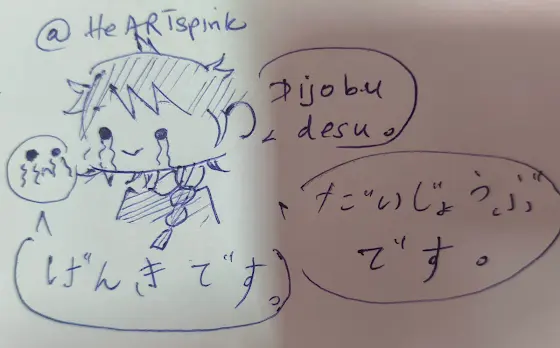 @HeARTspink
Dijobu
desu。
だいじょうぶ
です。
げんきです。